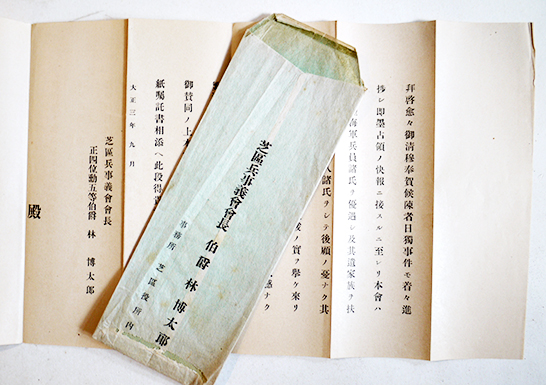 拜啓愈々御清穆奉賀候陳者日獨事件モ着々進
抄シ即墨占領ノ快報ニ接スルニ至レリ本會ハ
海軍兵員諸氏ヲ優遇シ及其遺家族ヲ扶
人諸氏ヲシテ後顧ノ憂ナク其
ノ實ヲ擧ケ來リ
ナク
御賛同ノ上
紙囑託書相添ヘ此段得
大正三年九月
芝區兵事義會會長
正四位勳五等伯爵 林 博太郎
殿
芝區兵事義會會長 伯爵 林 博太郎
事務所 芝區役所内